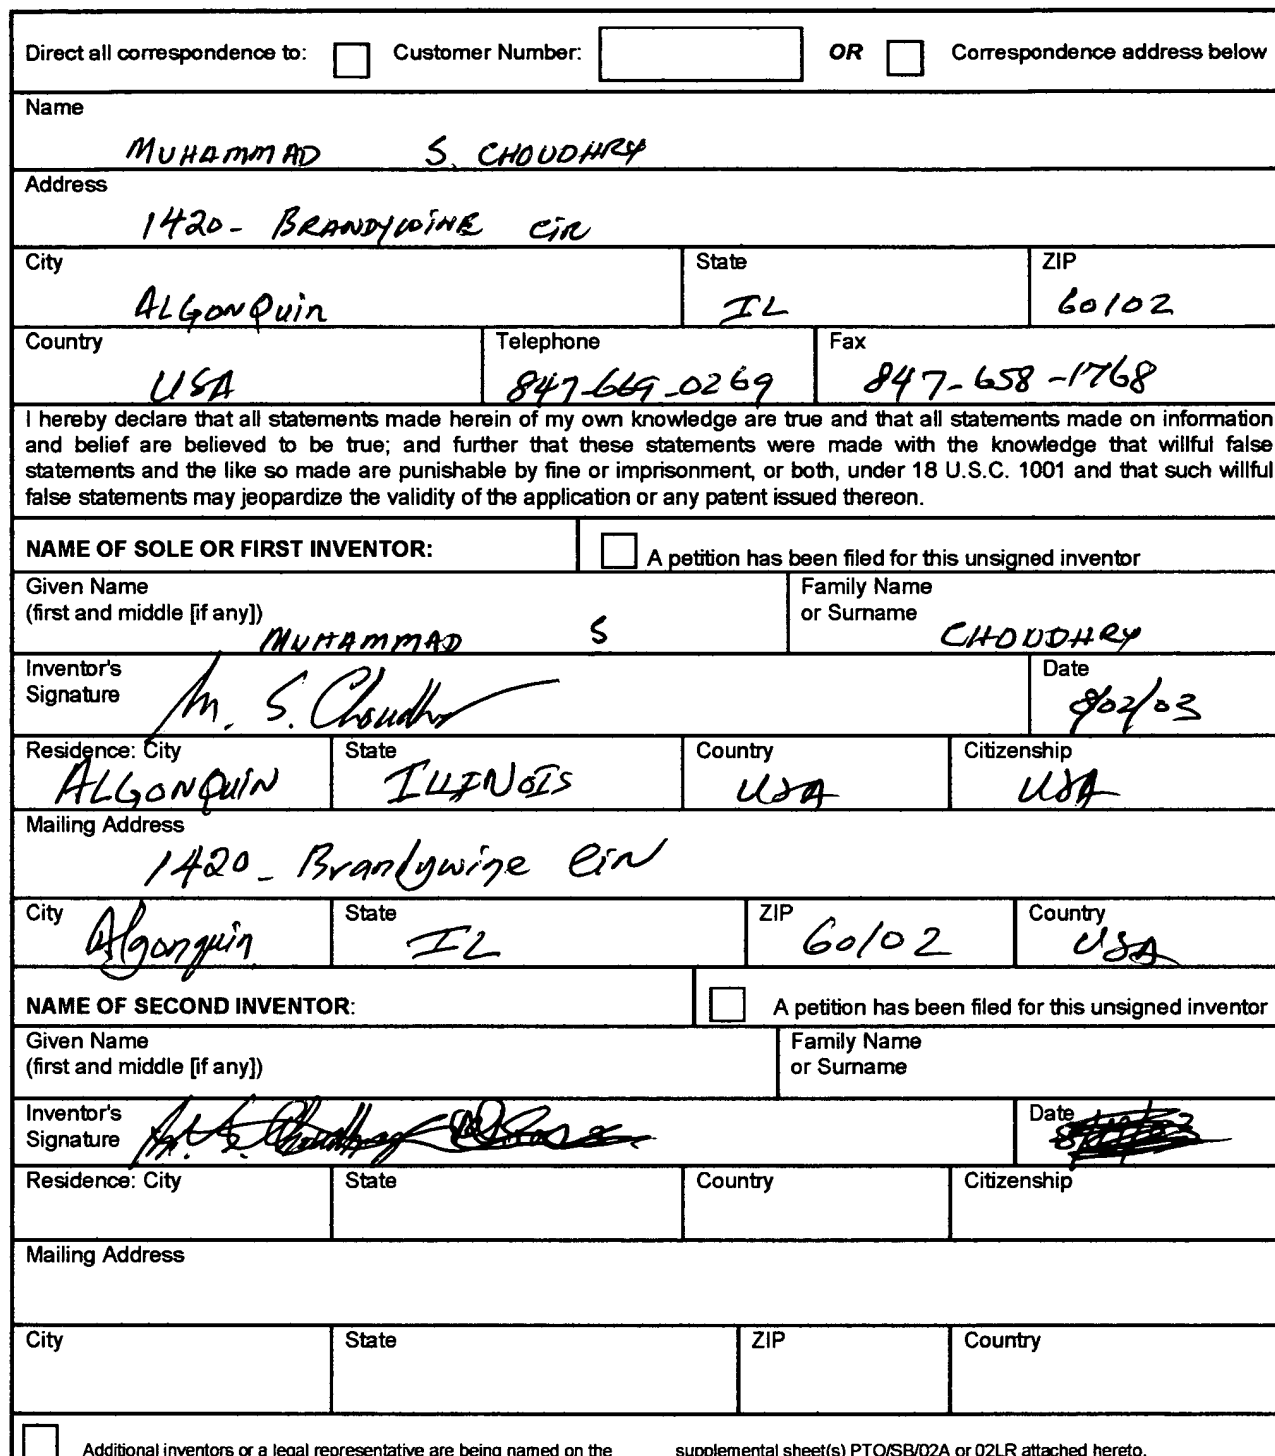 Direct all correspondence to: Customer Number: OR Correspondence address below
Name
MUHAMMAD S. CHOUDHRY
Address
1420- BRANDYWINE Cir
City State ZIP
ALGONQuin IL 60102
Country Telephone Fax
USA 847-669-0269 847-658-1768
I hereby declare that all statements made herein of my own knowledge are true and that all statements made on information
and belief are believed to be true; and further that these statements were made with the knowledge that willful false
statements and the like so made are punishable by fine or imprisonment, or both, under 18 U.S.C. 1001 and that such willful
false statements may jeopardize the validity of the application or any patent issued thereon.
NAME OF SOLE OR FIRST INVENTOR: A petition has been filed for this unsigned inventor
Given Name Family Name
(first and middle [if any]) or Surname
MUHAMMAD S CHOUDHRY
Inventor's Date
Signature M. S. Choudhry 8/02/03
Residence: City State Country Citizenship
ALGONQUIN ILLINOIS USA USA
Mailing Address
1420- Brandywine Cir
City State ZIP Country
Algonquin IL 60102 USA
NAME OF SECOND INVENTOR: A petition has been filed for this unsigned inventor
Given Name Family Name
(first and middle [if any]) or Surname
Inventor's Date
Signature
Residence: City State Country Citizenship
Mailing Address
City State ZIP Country
Additional inventors or a legal representative are being named on the supplemental sheet(s) PTO/SB/02A or 02LR attached hereto.